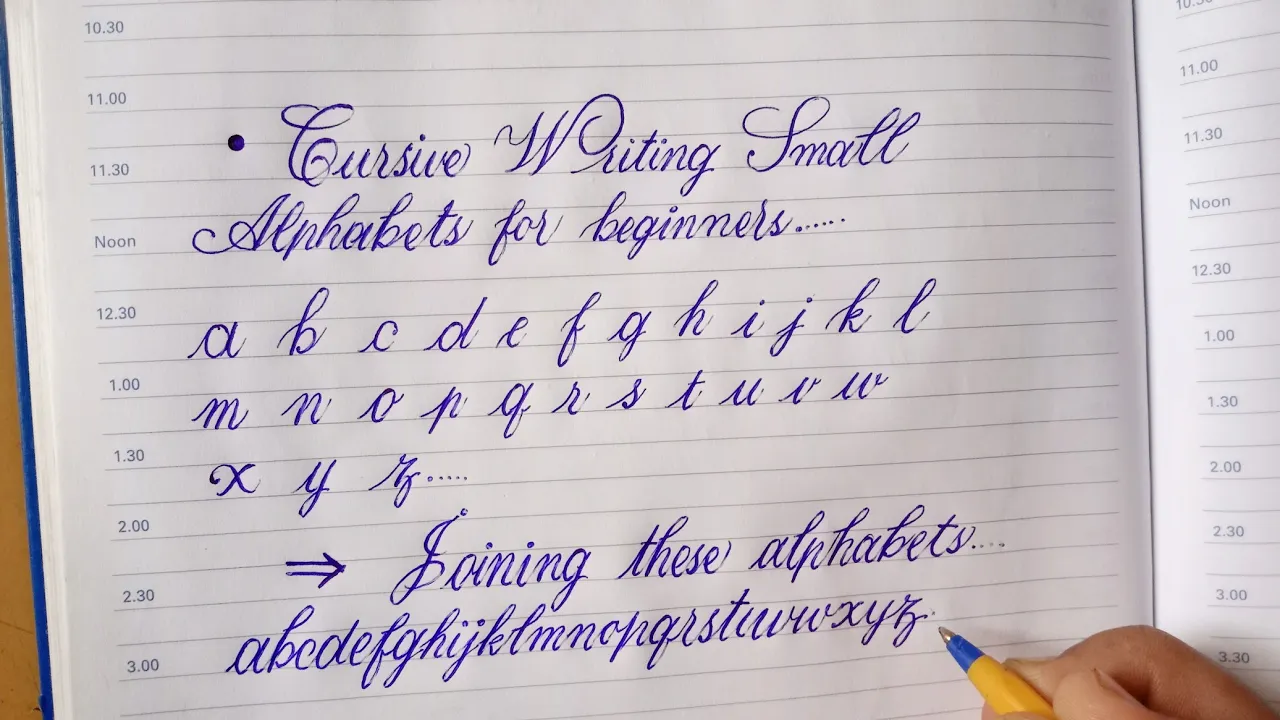 10.30
11.00
• Cursive Writing Small
11.30
Alphabets for beginners.....
Noon
12.30
a b c d e f g h i j k l
1.00
m n o p q r s t u v w
1.30
x y z.....
2.00
⇒ Joining these alphabets....
2.30
abcdefghijklmnopqrstuvwxyz.
3.00
10.30
11.00
11.30
Noon
12.30
1.00
1.30
2.00
2.30
3.00
3.30